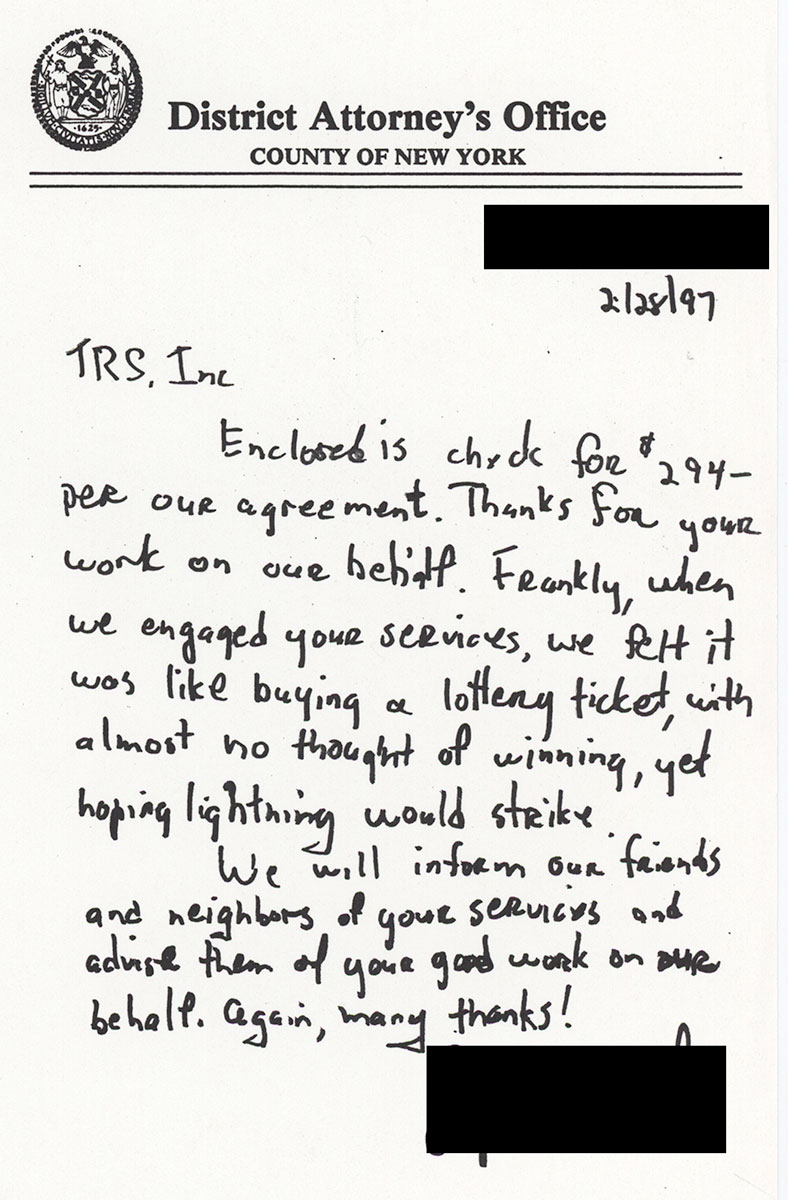 ·1625·
District Attorney's Office
COUNTY OF NEW YORK
2/28/97
TRS, Inc
Enclosed is check for $294—
per our agreement. Thanks for your
work on our behalf. Frankly, when
we engaged your services, we felt it
was like buying a lottery ticket, with
almost no thought of winning, yet
hoping lightning would strike.
We will inform our friends
and neighbors of your services and
advise them of your good work on our
behalf. Again, many thanks!